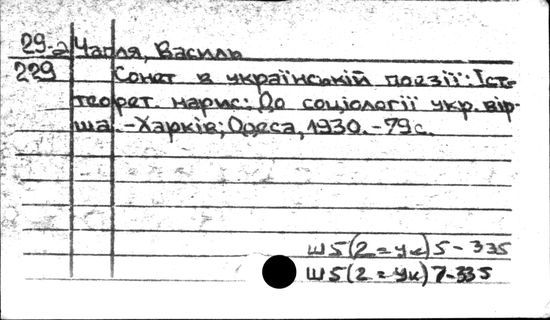 29-2 Чапля, Василь
229 Сонет в українській поезії: Іст.-
теорет. нарис: До соціології укр. вір-
ша. - Харків; Одеса, 1930. - 79 с.
Ш5(2=Ук)5-335
Ш5(2=Ук)7-335